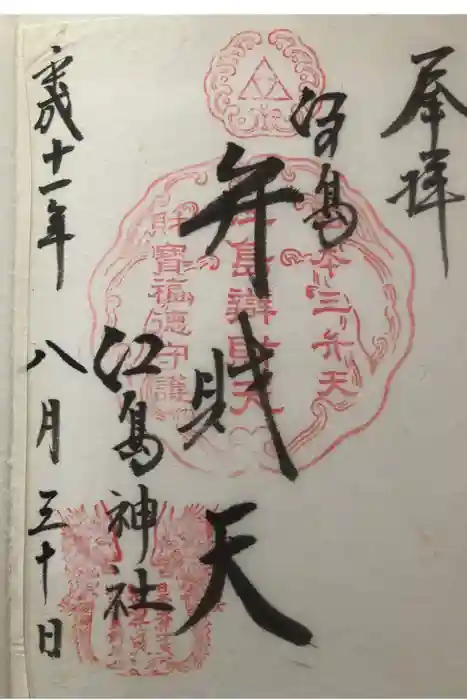 奉拝
江島
弁財天
江島神社
平成十一年 八月三十日
日本三弁天
江島辨財天
財寶福徳守護